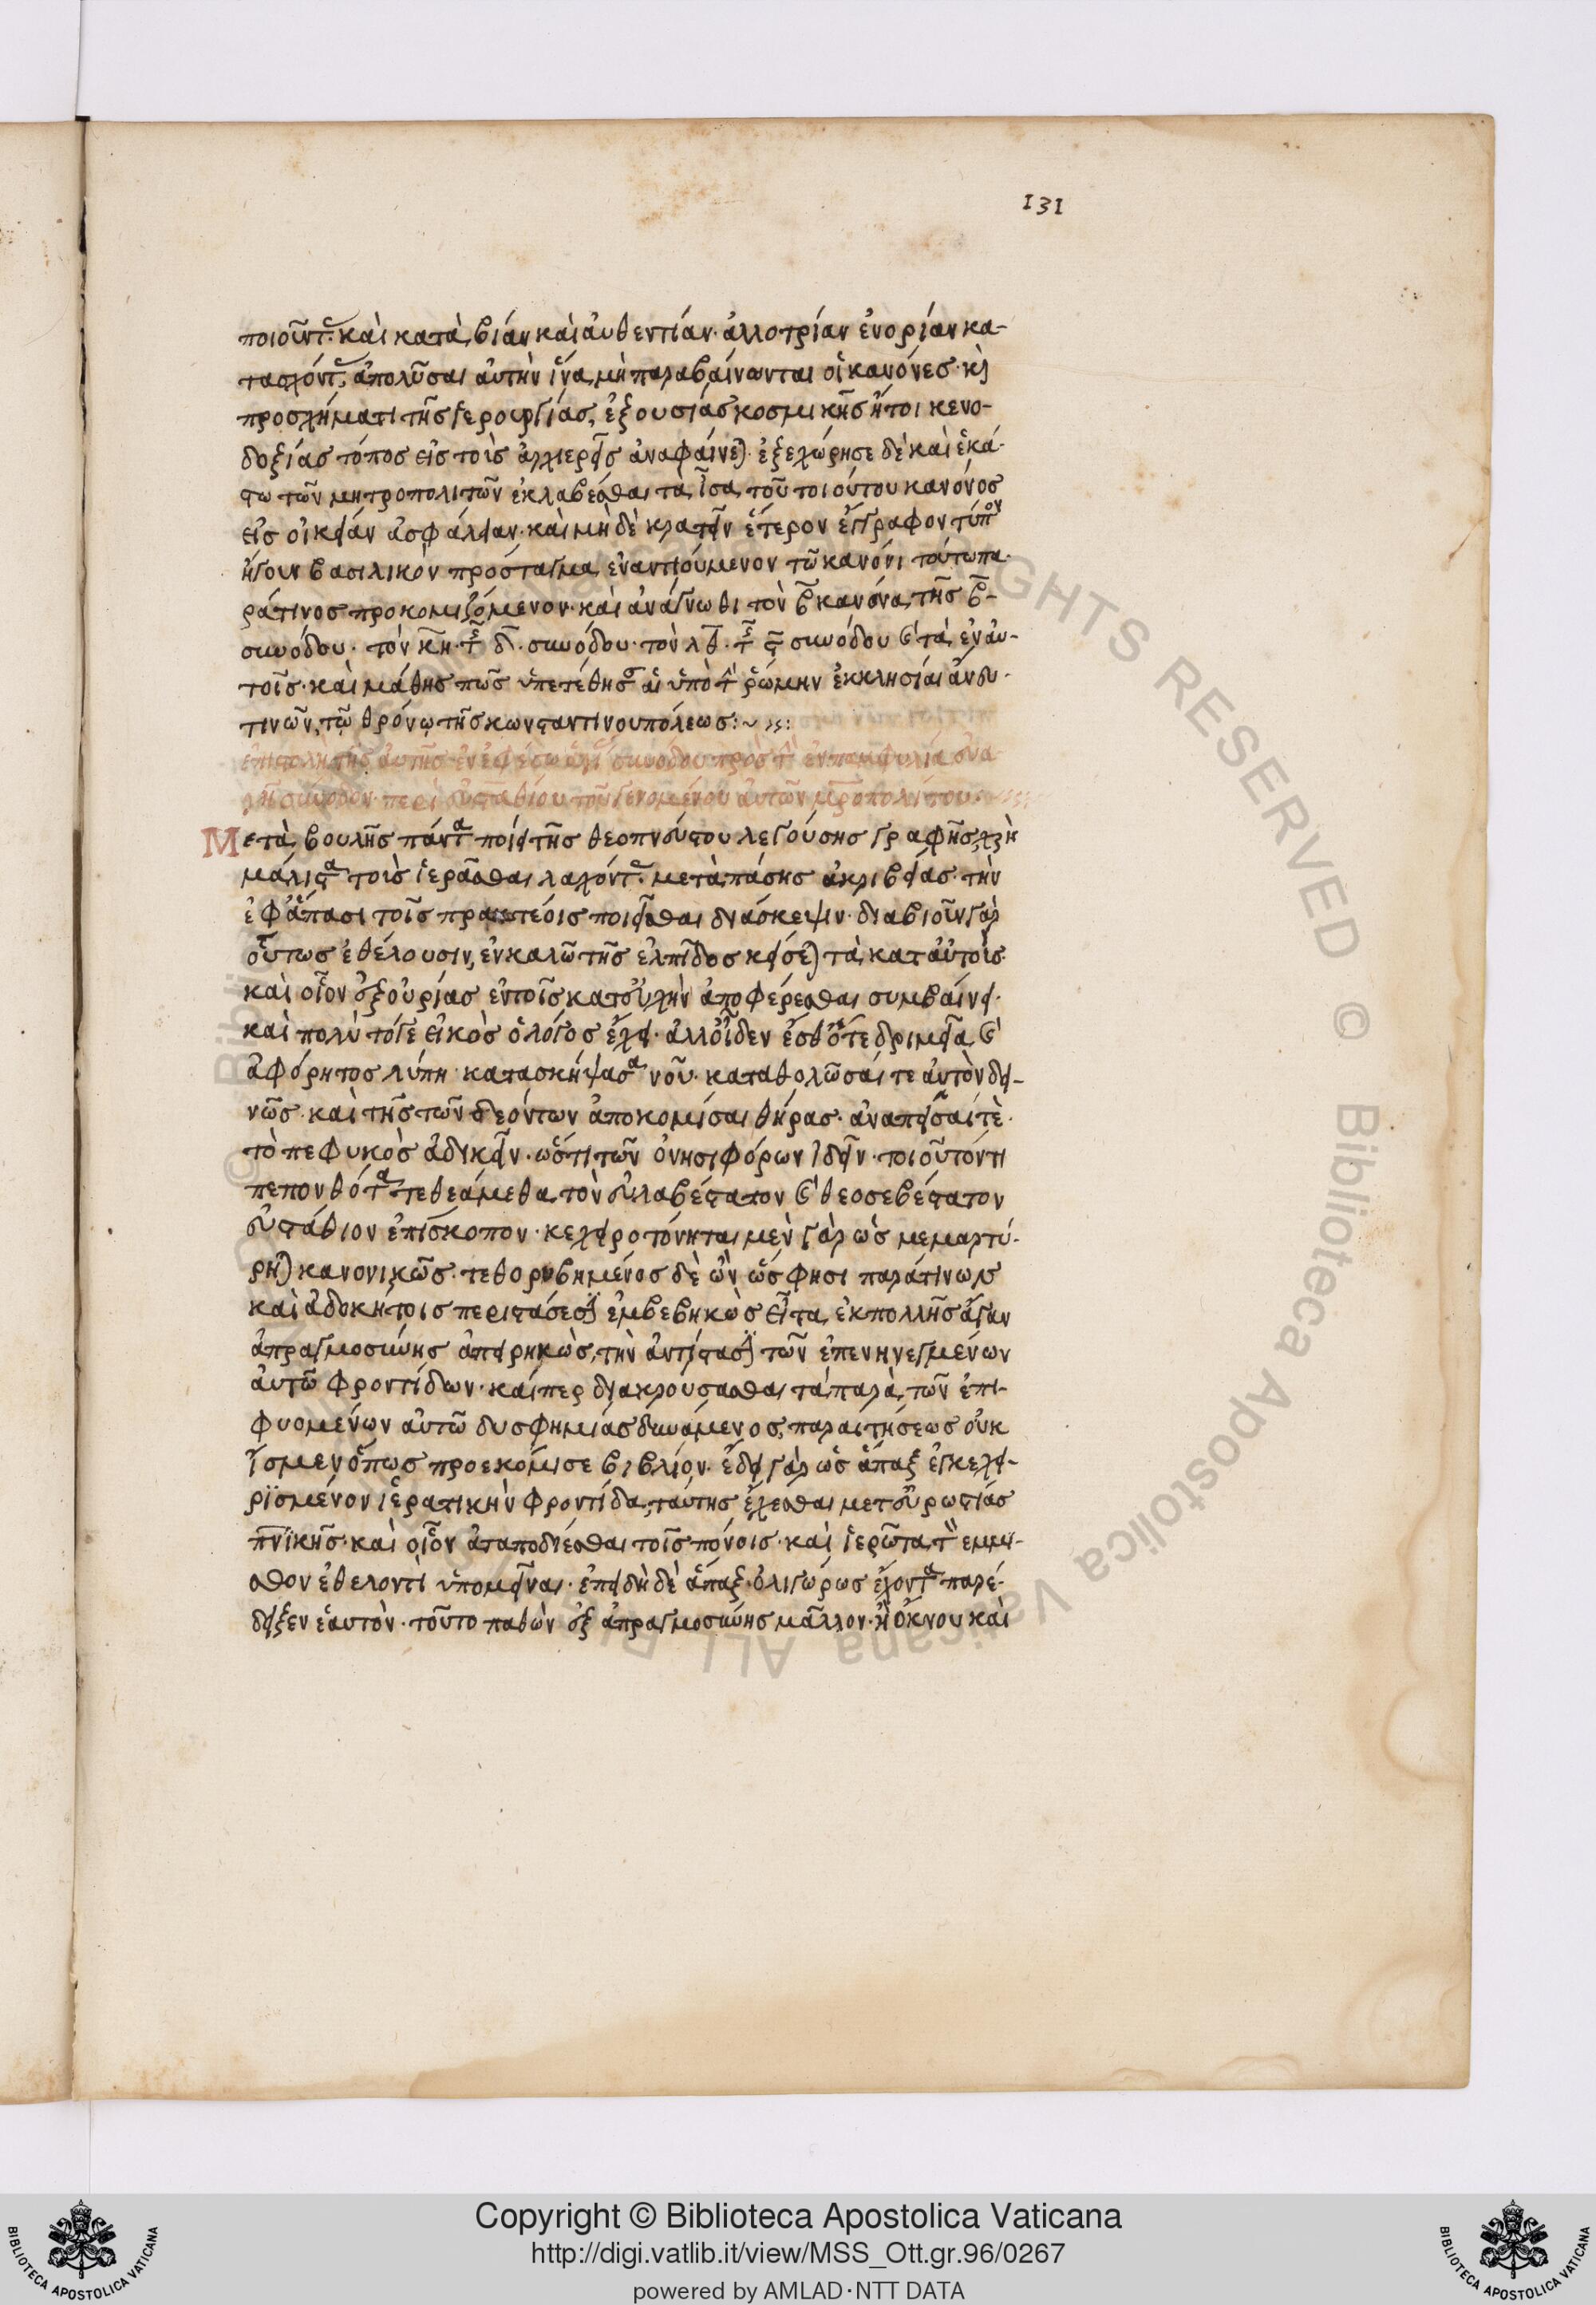 131
ποιοῦντ(ας) καὶ κατὰ βίαν καὶ αὐθεντίαν· ἀλλοτρίαν ἐνορίαν κα-
τασχόντ(ας), ἀπολῦσαι αὐτὴν ἵνα μὴ παραβαίνωνται οἱ κανόνες· κ(αὶ)
προσχήματι τῆς ἱερουργίας, ἐξουσίας κοσμικῆς ἤτοι κενο-
δοξίας τόπος εἰς τοὺς ἀρχιερεῖς ἀναφαίνε(ται)· ἐξεχώρησε δὲ καὶ ἑκά-
στω τῶν μητροπολιτῶν ἐκλαβέσθαι τὰ ἶσα τοῦ τοιούτου κανόνος
εἰς οἰκείαν ἀσφάλειαν· καὶ μὴ δὲ κρατεῖν ἕτερον ἔγγραφον τύπον
ἤγουν βασιλικὸν πρόσταγμα ἐναντιούμενον τῶ κανόνι τούτω πα-
ρά τινος προκομιζόμενον· καὶ ἀνάγνωθι τὸν β κανόνα τῆς β
συνόδου· τὸν κη τῆς δ συνόδου· τὸν λθ τῆς ϛ συνόδου καὶ τὰ ἐν αὐ-
τοῖς· καὶ μάθης πῶς ὑπετέθησ(αν) αἱ ὑπὸ τ(ὴν) ῥώμην ἐκκλησίαι ἄνευ
τινῶν, τῷ θρόνῳ τῆς κωνσταντινουπόλεως:~
ἐπιστολὴ τῆς αὐτῆς ἐν ἐφέσω ἁγί(ας) συνόδου πρὸς τ(ὴν) ἐν παμφυλία εὐα-
γῆ σύνοδον περὶ εὐσταθίου τοῦ γενομένου αὐτῶν μητροπολίτου
Μετὰ βουλῆς πάντα ποίει τῆς θεοπνεύστου λεγούσης γραφῆς, χρὴ
μάλιστα τοὺς ἱερᾶσθαι λαχόντ(ας) μετὰ πάσης ἀκριβείας τὴν
ἐφ' ἅπασι τοῖς πρακτέοις ποιεῖσθαι διάσκεψιν· διαβιοῦν γὰρ
οὕτως ἐθέλουσιν, ἐν καλῶ τῆς ἐλπίδος κείσε(ται) τὰ κατ' αὐτοὺς
καὶ οἷον ἐξ οὐρίας ἐν τοῖς κατ' εὐχὴν ἀποφέρεσθαι συμβαίνει·
καὶ πολὺ τό γε εἰκὸς ὁ λόγος ἔχει· ἀλλ' οἶδεν ἔσθ' ὅτε δριμεῖα καὶ
ἀφόρητος λύπη κατασκήψασα νοῦ· καταθολῶσαί τε αὐτὸν δει-
νῶς· καὶ τῆς τῶν δεόντων ἀποκομίσαι θήρας· ἀναπεῖσαί τὲ
τὸ πεφυκὸς ἀδικεῖν· ὥς τι τῶν ὀνησιφόρων ἰδεῖν· τοιοῦτόν τι
πεπονθότα τεθεάμεθα τὸν εὐλαβέστατον καὶ θεοσεβέστατον
εὐστάθιον ἐπίσκοπον· κεχειροτόνηται μὲν γὰρ ὡς μεμαρτύ-
ρη(ται) κανονικῶς· τεθορυβημένος δὲ ὢν ὥς φησι παρά τινων
καὶ ἀδοκήτοις περιστάσεσιν ἐμβεβηκὼς εἶτα ἐκ πολλῆς ἄγαν
ἀπραγμοσύνης ἀπειρηκὼς, τὴν ἀντίστασιν τῶν ἐπενηνεγμένων
αὐτῶ φροντίδων· καίπερ διακρούσασθαι τὰ παρὰ τῶν ἐπι-
φυομένων αὐτῶ δυσφημίας δυνάμενος, παραιτήσεως οὐκ
ἴσμεν ὅπως προεκόμισε βιβλίον· ἔδει γὰρ ὡς ἅπαξ ἐγκεχει-
ρϊσμένον ἱερατικὴν φροντίδα, ταύτης ἔχεσθαι μετ' εὐρωστίας
πνϊκῆς· καὶ οἷον ἀνταποδύεσθαι τοῖς πόνοις· καὶ ἱδρῶτα τὸν ἔμμι-
σθον ἐθελοντὶ ὑπομεῖναι· ἐπειδὴ δὲ ἅπαξ ὀλιγώρως ἔχοντα παρέ-
δειξεν ἑαυτὸν· τοῦτο παθὼν ἐξ ἀπραγμοσύνης μᾶλλον ἢ ὄκνου καὶ
Copyright © Biblioteca Apostolica Vaticana
http://digi.vatlib.it/view/MSS_Ott.gr.96/0267
powered by AMLAD·NTT DATA
BIBLIOTECA APOSTOLICA VATICANA
BIBLIOTECA APOSTOLICA VATICANA